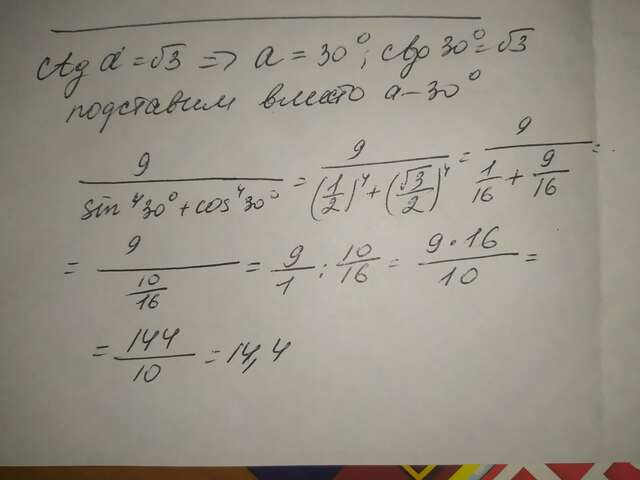 ctg α = √3 => α = 30°; ctg 30° = √3
подставим вместо α - 30°
9/(sin⁴30° + cos⁴30°) = 9/((1/2)⁴ + (√3/2)⁴) = 9/(1/16 + 9/16) =
= 9/(10/16) = 9/1 : 10/16 = (9·16)/10 =
= 144/10 = 14,4